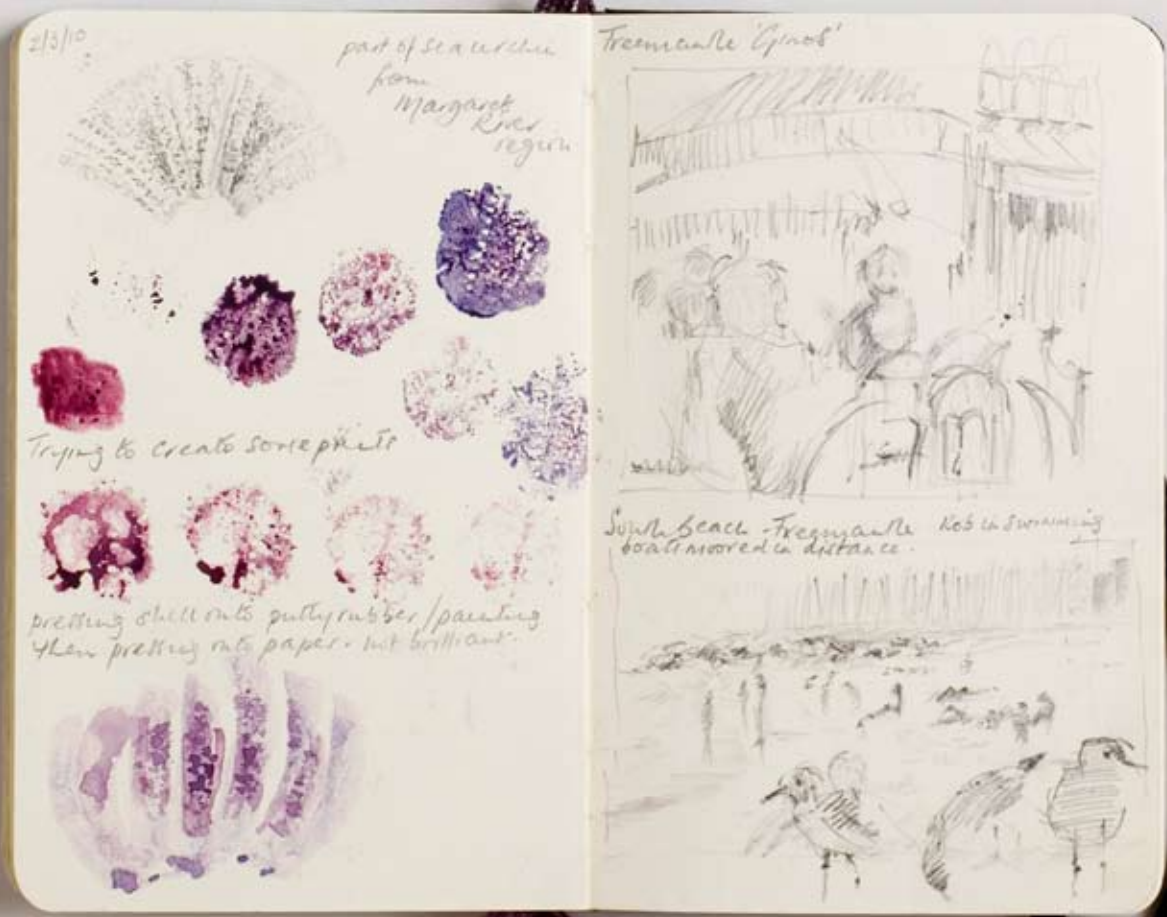 2/3/10
part of sea urchin
from
Margaret
River
region
Trying to create some prints
pressing shell onto putty rubber/painting
then pressing onto paper - not brilliant.
Freemantle 'Ginos'
South Beach - Freemantle in swimming
boats moored in distance.